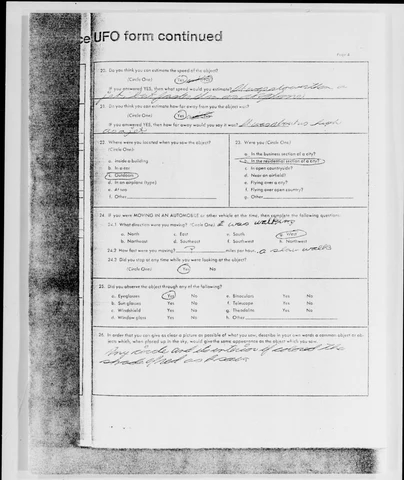 ce UFO form continued
Page 4
20. Do you think you can estimate the speed of the object?
(Circle One) Yes
If you answered YES, then what speed would you estimate?
21. Do you think you can estimate how far away from you the object was?
(Circle One) Yes
If you answered YES, then how far away would you say it was? as high
as a jet
22. Where were you located when you saw the object?
(Circle One)
a. Inside a building
b. In a car
c. Outdoors
d. In an airplane (type)
e. At sea
f. Other
23. Were you (Circle One)
a. In the business section of a city?
b. In the residential section of a city?
c. In open countryside?
d. Near an airfield?
e. Flying over a city?
f. Flying over open country?
g. Other
24. If you were MOVING IN AN AUTOMOBILE or other vehicle at the time, then complete the following questions:
24.1 What direction were you moving? (Circle One) I was walking
a. North c. East e. South g. West
b. Northeast d. Southeast f. Southwest h. Northwest
24.2 How fast were you moving? ? miles per hour. a slow walk
24.3 Did you stop at any time while you were looking at the object?
(Circle One) Yes No
25. Did you observe the object through any of the following?
a. Eyeglasses Yes No e. Binoculars Yes No
b. Sun glasses Yes No f. Telescope Yes No
c. Windshield Yes No g. Theodolite Yes No
d. Window glass Yes No h. Other
26. In order that you can give as clear a picture as possible of what you saw, describe in your own words a common object or objects which, when placed up in the sky, would give the same appearance as the object which you saw.